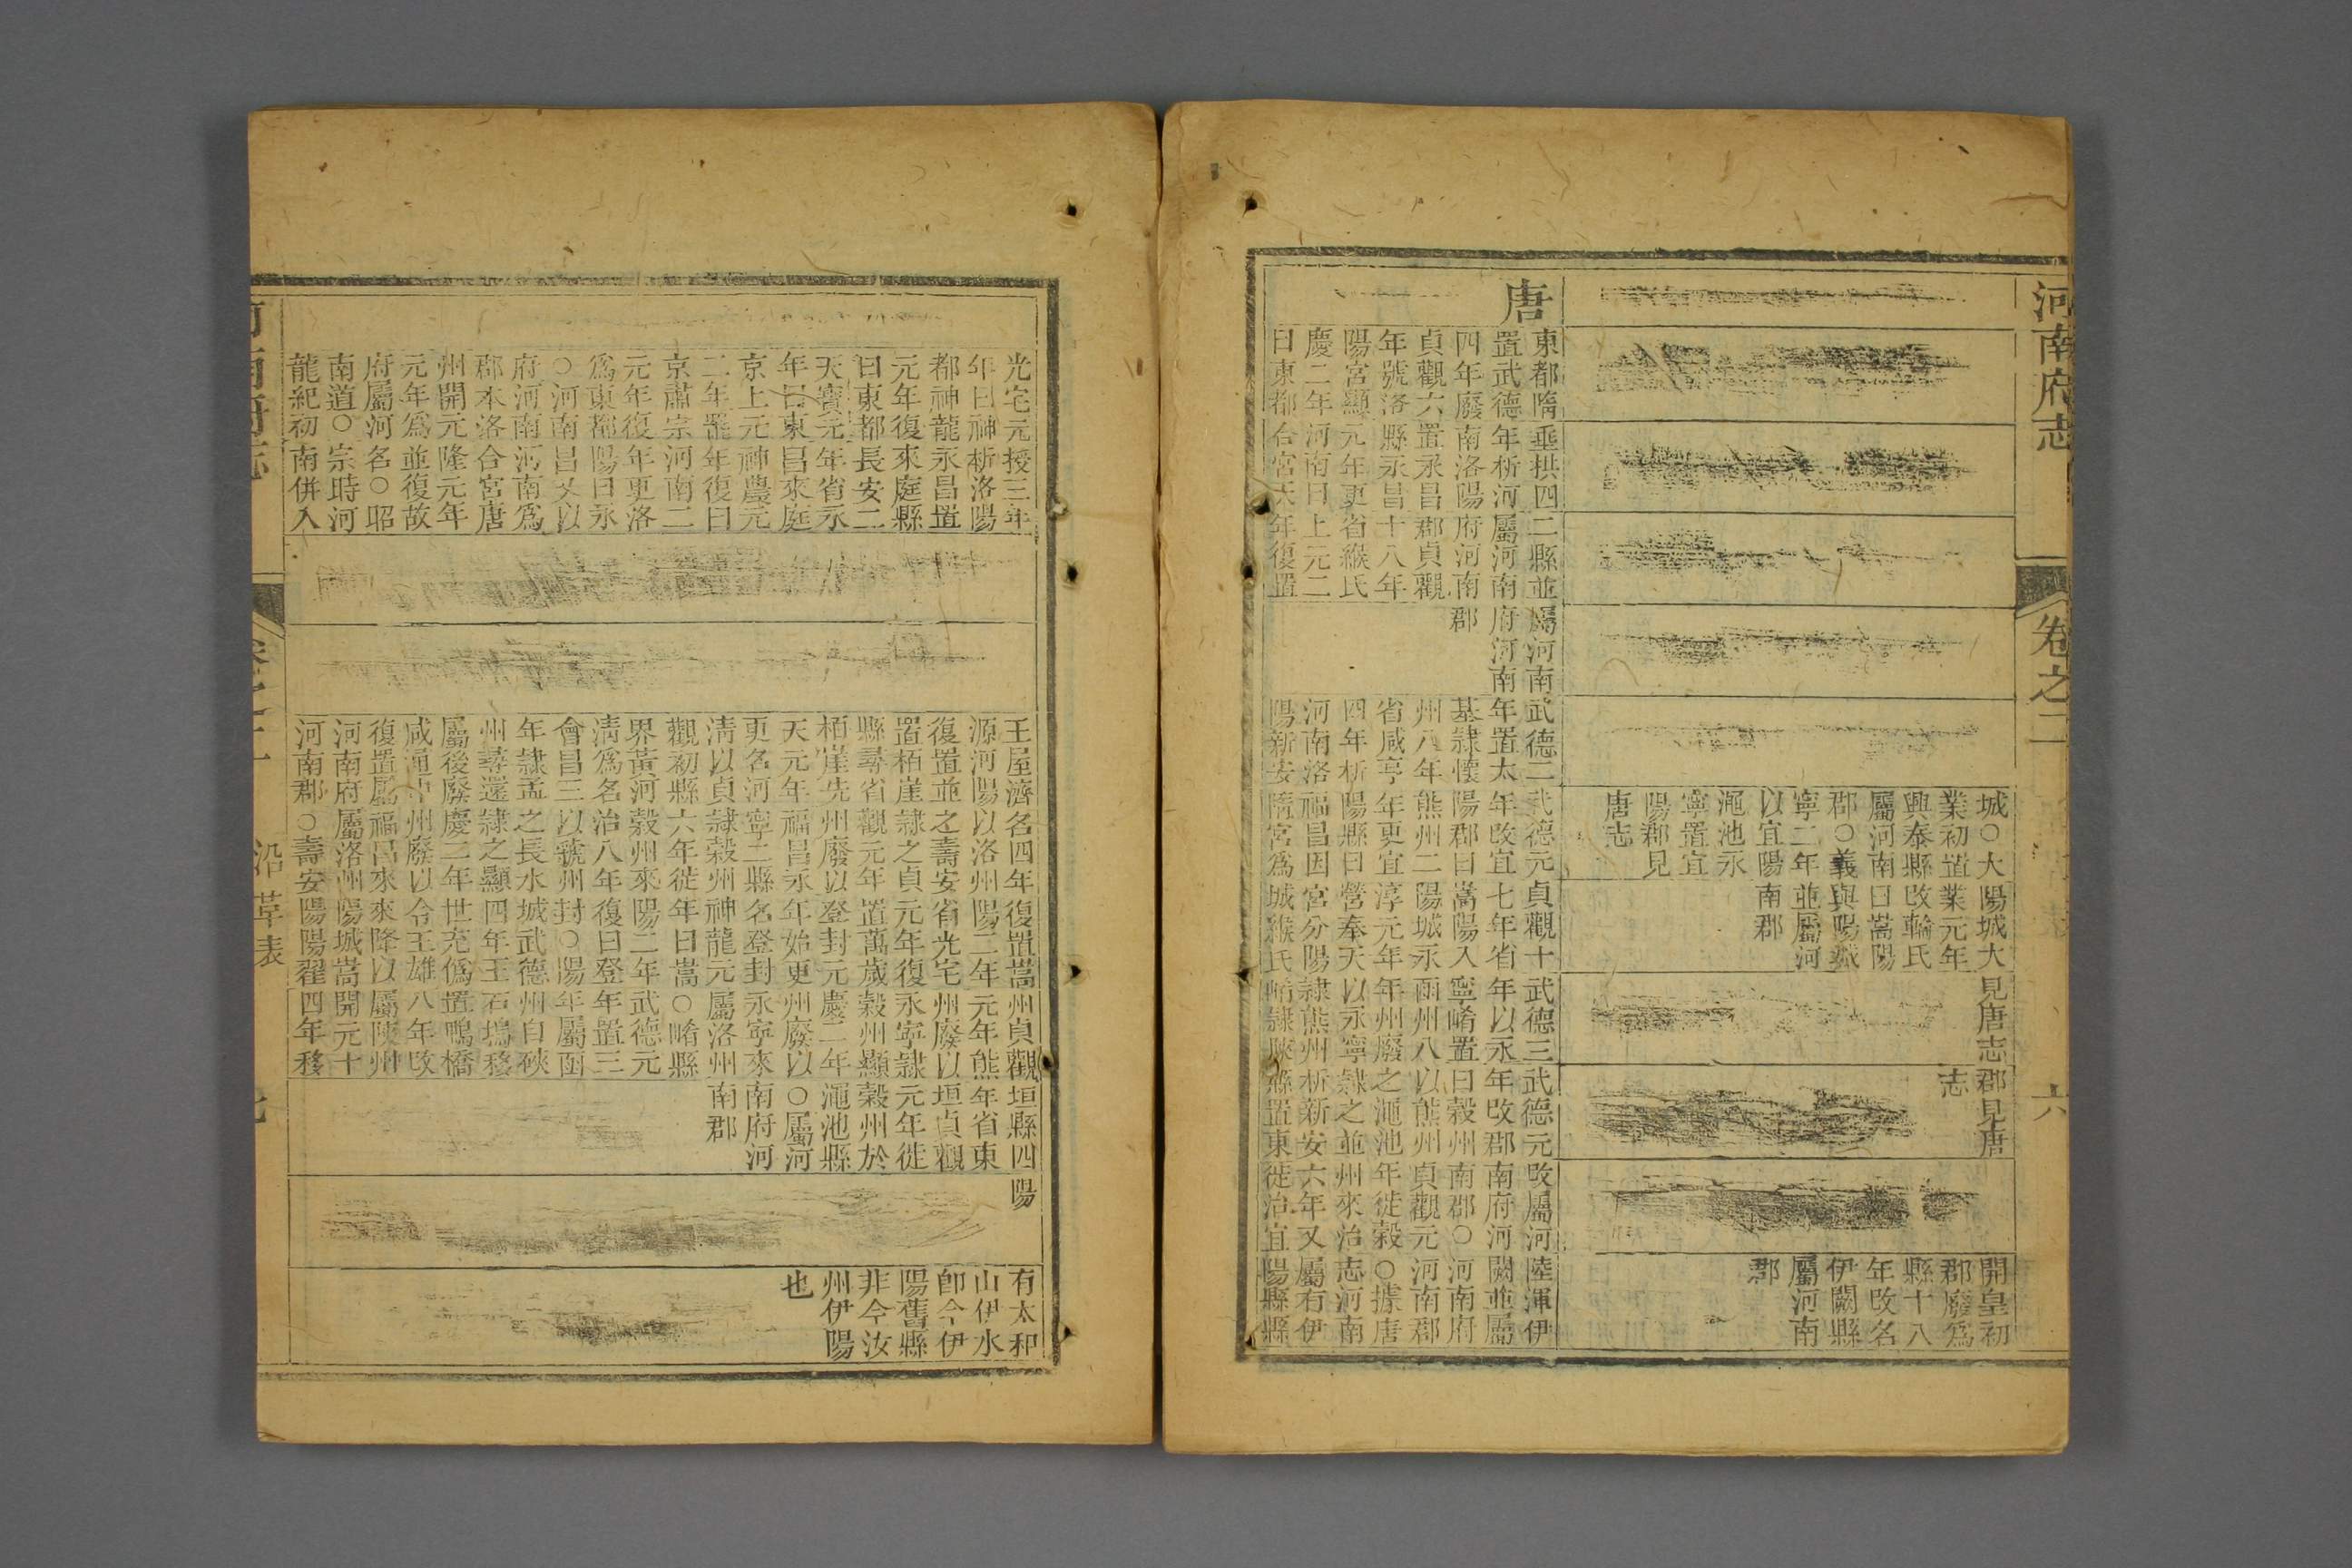 河南府志
卷之二
六
城○大
業初置
興泰縣
屬河南
郡○義
寧二年
以宜陽
澠池永
寧置宜
陽郡見
唐志
陽城大
業元年
改輪氏
曰嵩陽
與陽城
並屬河
南郡
見唐志
郡見唐
志
開皇初
郡廢爲
縣十八
年改名
伊闕縣
屬河南
郡
唐
東都隋
置武德
四年廢
貞觀六
年號洛
陽宮顯
慶二年
曰東都
垂拱四
年析河
南洛陽
置永昌
縣永昌
元年更
河南曰
合宮天
二縣並
屬河南
府河南
郡貞觀
十八年
省緱氏
上元二
年復置
屬河南
府河南
郡
武德二
年置太
基隸懷
州八年
省咸亨
四年析
河南洛
陽新安
武德元
年改宜
陽郡曰
熊州二
年更宜
陽縣曰
福昌因
隋宮爲
貞觀十
七年省
嵩陽入
陽城永
淳元年
營奉天
宮分陽
城緱氏
武德三
年以永
寧崤置
函州八
年州廢
以永寧
隸熊州
崤隸陝
武德元
年改郡
曰穀州
以熊州
之澠池
隸之並
析新安
縣置東
改屬河
南府河
南郡○
貞觀元
年徙穀
州來治
六年又
徙治宜
陸渾伊
闕並屬
河南府
河南郡
○據唐
志河南
屬有伊
陽縣縣
光宅元
年曰神
都神龍
元年復
曰東都
天寶元
年曰東
京上元
二年罷
京肅宗
元年復
爲東都
○河南
府河南
郡本洛
州開元
元年爲
府屬河
南道○
龍紀初
授三年
析洛陽
永昌置
來庭縣
長安二
年省永
昌來庭
神龍元
年復曰
河南二
年更洛
陽曰永
昌又以
河南爲
合宮唐
隆元年
並復故
名○昭
宗時河
南併入
王屋濟
源河陽
復置並
置柏崖
縣尋省
柏崖先
天元年
更名河
清以貞
觀初縣
界黃河
清爲名
會昌三
年隸孟
州尋還
屬後廢
咸通中
復置屬
河南府
河南郡
名四年
以洛州
之壽安
隸之貞
觀元年
州廢以
福昌永
寧二縣
隸穀州
六年徙
穀州來
治八年
以虢州
之長水
隸之顯
慶二年
州廢以
福昌來
屬洛州
○壽安
復置嵩
陽二年
省光宅
元年復
置萬歲
登封元
年始更
名登封
神龍元
年曰嵩
陽二年
復曰登
封○陽
城武德
四年王
世充僞
令王雄
來降以
陽城嵩
陽陽翟
州貞觀
元年熊
州廢以
永寧隸
穀州顯
慶二年
州廢以
永寧來
屬洛州
○崤縣
武德元
年置三
年屬函
州自硤
石塢移
置鴨橋
八年改
屬陝州
開元十
四年移
垣縣四
年省東
垣貞觀
元年徙
穀州於
澠池縣
○屬河
南府河
南郡
陽
有太和
山伊水
卽今伊
陽舊縣
非今汝
州伊陽
也
河南府志
卷之二
沿革表
七